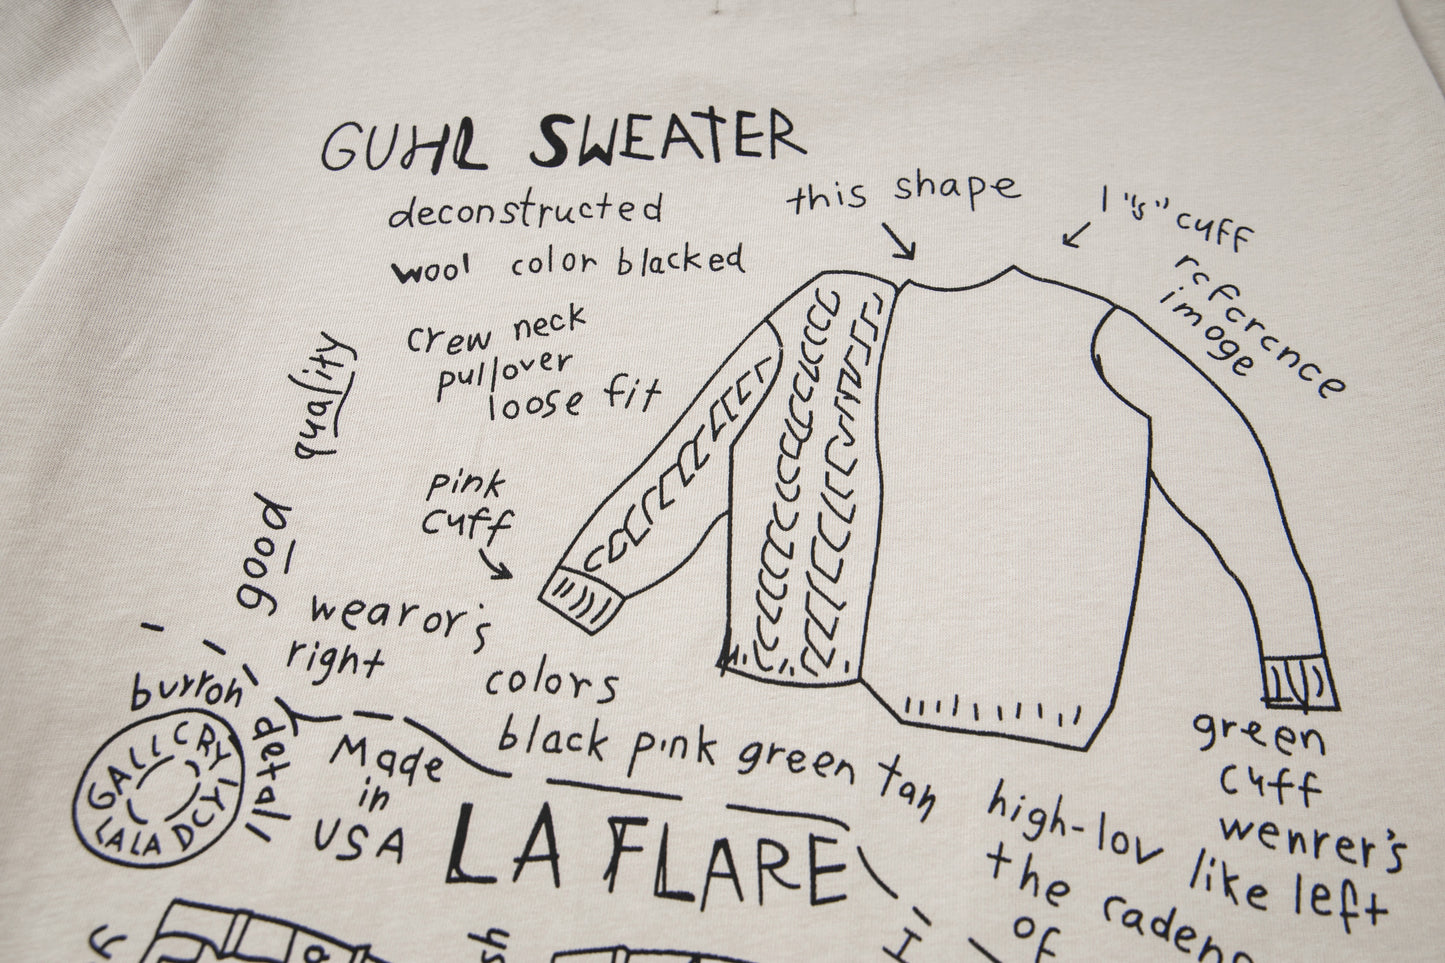 GUHL SWEATER
deconstructed
wool color blacked
this shape
1 "is" cuff
rcfcrcnce
imoge
crew neck
pullover
loose fit
good quality
pink
cuff
wearor's
right
colors
black pink green tan
burron
petall
GALLCRY
LALA DCYI
Made
in
USA
LA FLARE
green
cuff
wenrer's
left
high-lov like
the cadenc
of